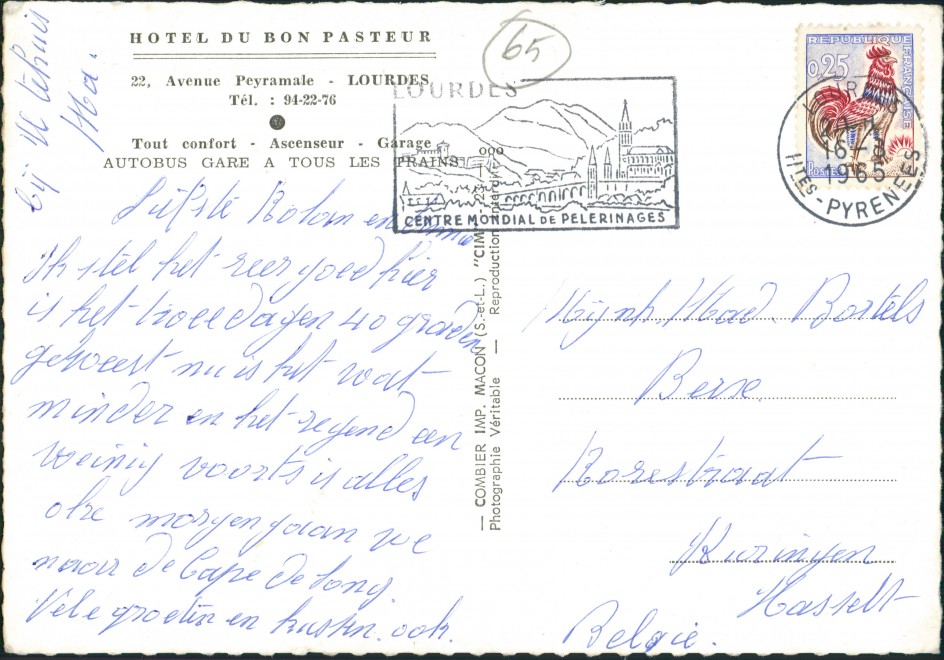 HOTEL DU BON PASTEUR
22, Avenue Peyramale - LOURDES
Tél. : 94-22-76
Tout confort - Ascenseur - Garage
AUTOBUS GARE A TOUS LES TRAINS
65
LOURDES
CENTRE MONDIAL DE PELERINAGES
REPUBLIQUE FRANÇAISE
0,25
POSTES
16-
1965
HTES-PYRENEES
Liefste Rolan en
Ik stel het zeer goed hier
is het twee dagen 40 graden
geweest nu is het wat
minder en het regend een
weinig voorts is alles
oke morgen gaan we
naar de Cape de Long.
Vele groeten en kussen ook
bij U tehuis
Ma.
— COMBIER IMP. MACON (S.-et-L.) "CIM"
Photographie Véritable — Reproduction interdite
Mijnh Mad. Bortels
Berx
Korestraat
Kuringen
Hasselt
Belgie.